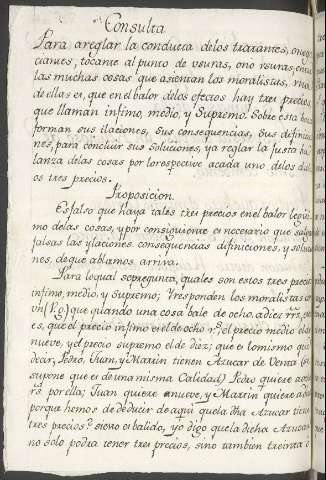 Consulta
Para areglar la conducta delos tratantes, o nego
ciantes, tocante al punto de vsuras, ono vsuras, entre
las muchas cosas que asientan los moralistas, vna
de ellas es, que en el balor delos efectos hay tres precios
que llaman infimo, medio, y Supremo. Sobre esta basa
forman sus ilaciones, sus consequencias, sus difinicio
nes, para concluir sus soluciones, ya reglar la justa ba
lanza delas cosas por lo respective acada uno delos di
os tres precios.
Proposicion.
Es falso que haya tales tres precios en el balor legiti
mo delas cosas, y por consiguiente es necesario que salgan
falsas las ylaciones, consequencias difiniciones, y solucio
nes, de que ablamos arriva.
Para loqual sepregunta, quales son estos tres precios
infimo, medio, y Supremo; Y responden los moralistas
vn (V.g.) que quando una cosa bale de ocho, adiez rrs.
es, que el precio infimo es el de ocho rs. el precio medio el de
nueve, y el precio supremo el de diez; que es lo mismo que
decir, Pedro, Juan, y Martin tienen Azucar de Venta (se
supone que es de una misma Calidad) Pedro quiere
por ella; Juan quiere anueve, y Martin quiere
porque hemos de deducir de aqui que la dha Azucar tiene
tres precios? si eso es balido, yo digo que la dicha Azucar
no solo podra tener tres precios, sino tambien treinta